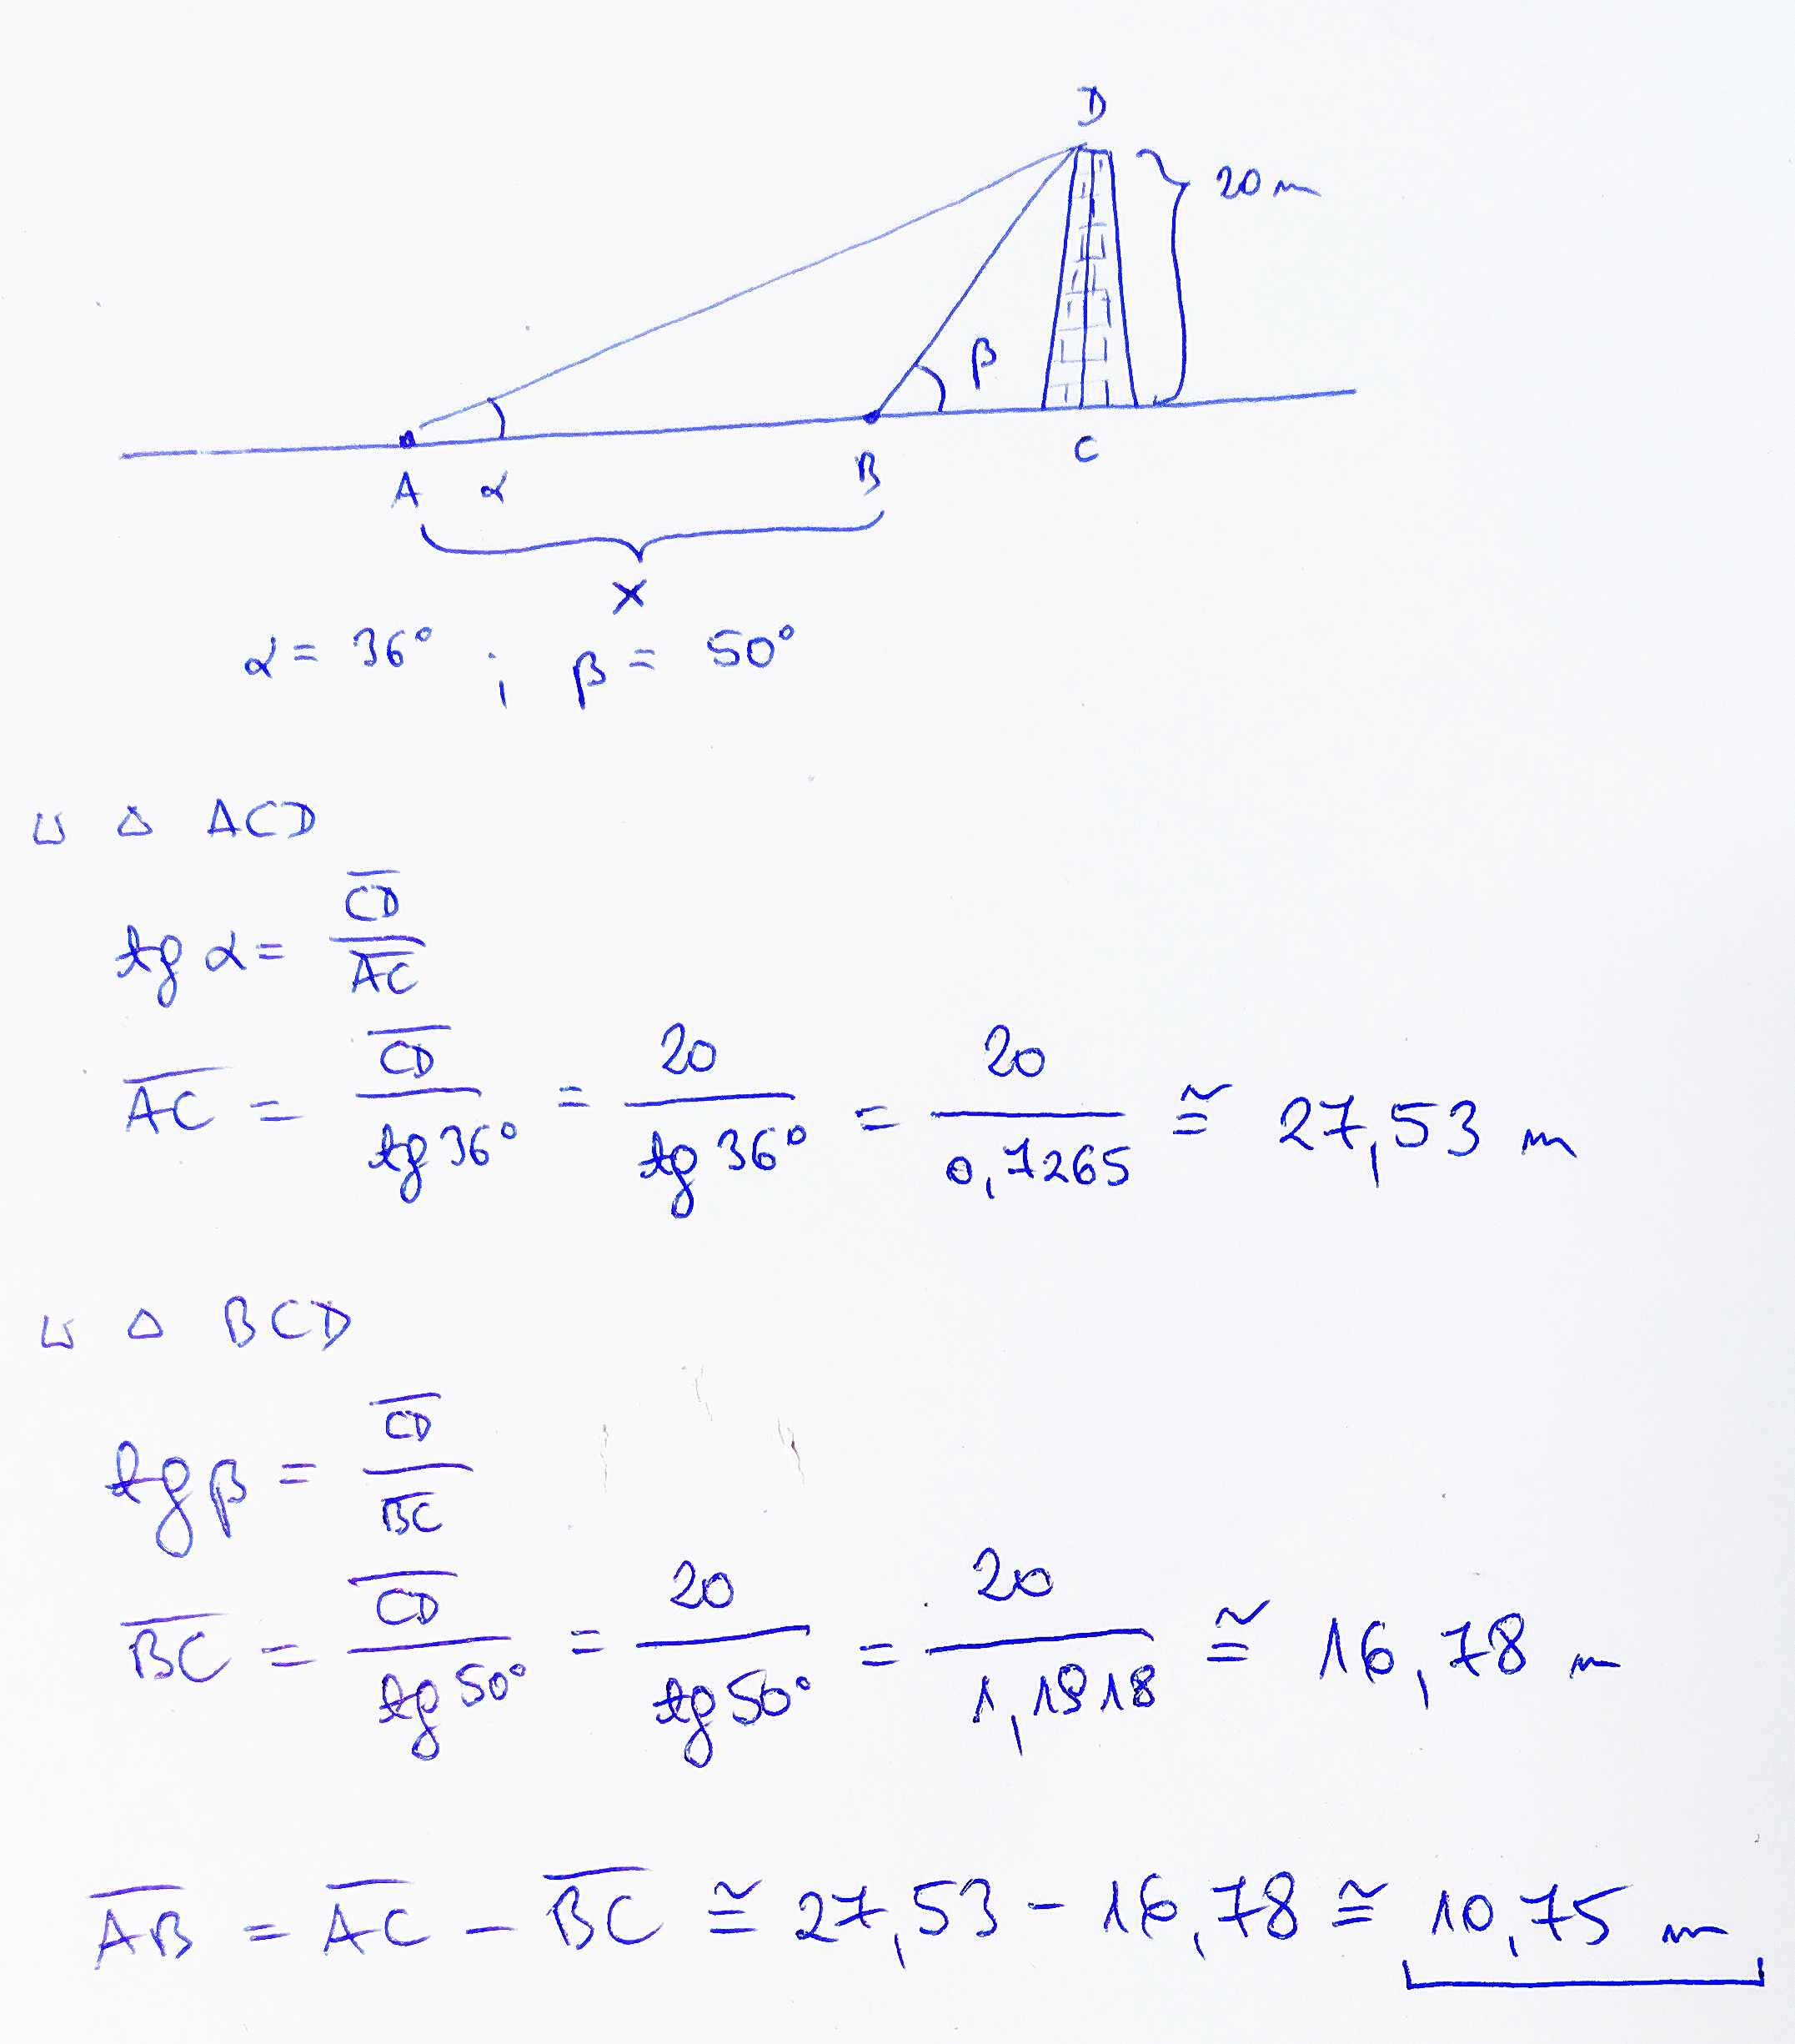 D
20 m
β
A α B C
x
α = 36° ; β = 50°
U △ ACD
tg α = CD̅ / AC̅
AC̅ = CD̅ / tg 36° = 20 / tg 36° = 20 / 0,7265 ≅ 27,53 m
U △ BCD
tg β = CD̅ / BC̅
BC̅ = CD̅ / tg 50° = 20 / tg 50° = 20 / 1,1918 ≅ 16,78 m
AB̅ = AC̅ - BC̅ ≅ 27,53 - 16,78 ≅ 10,75 m